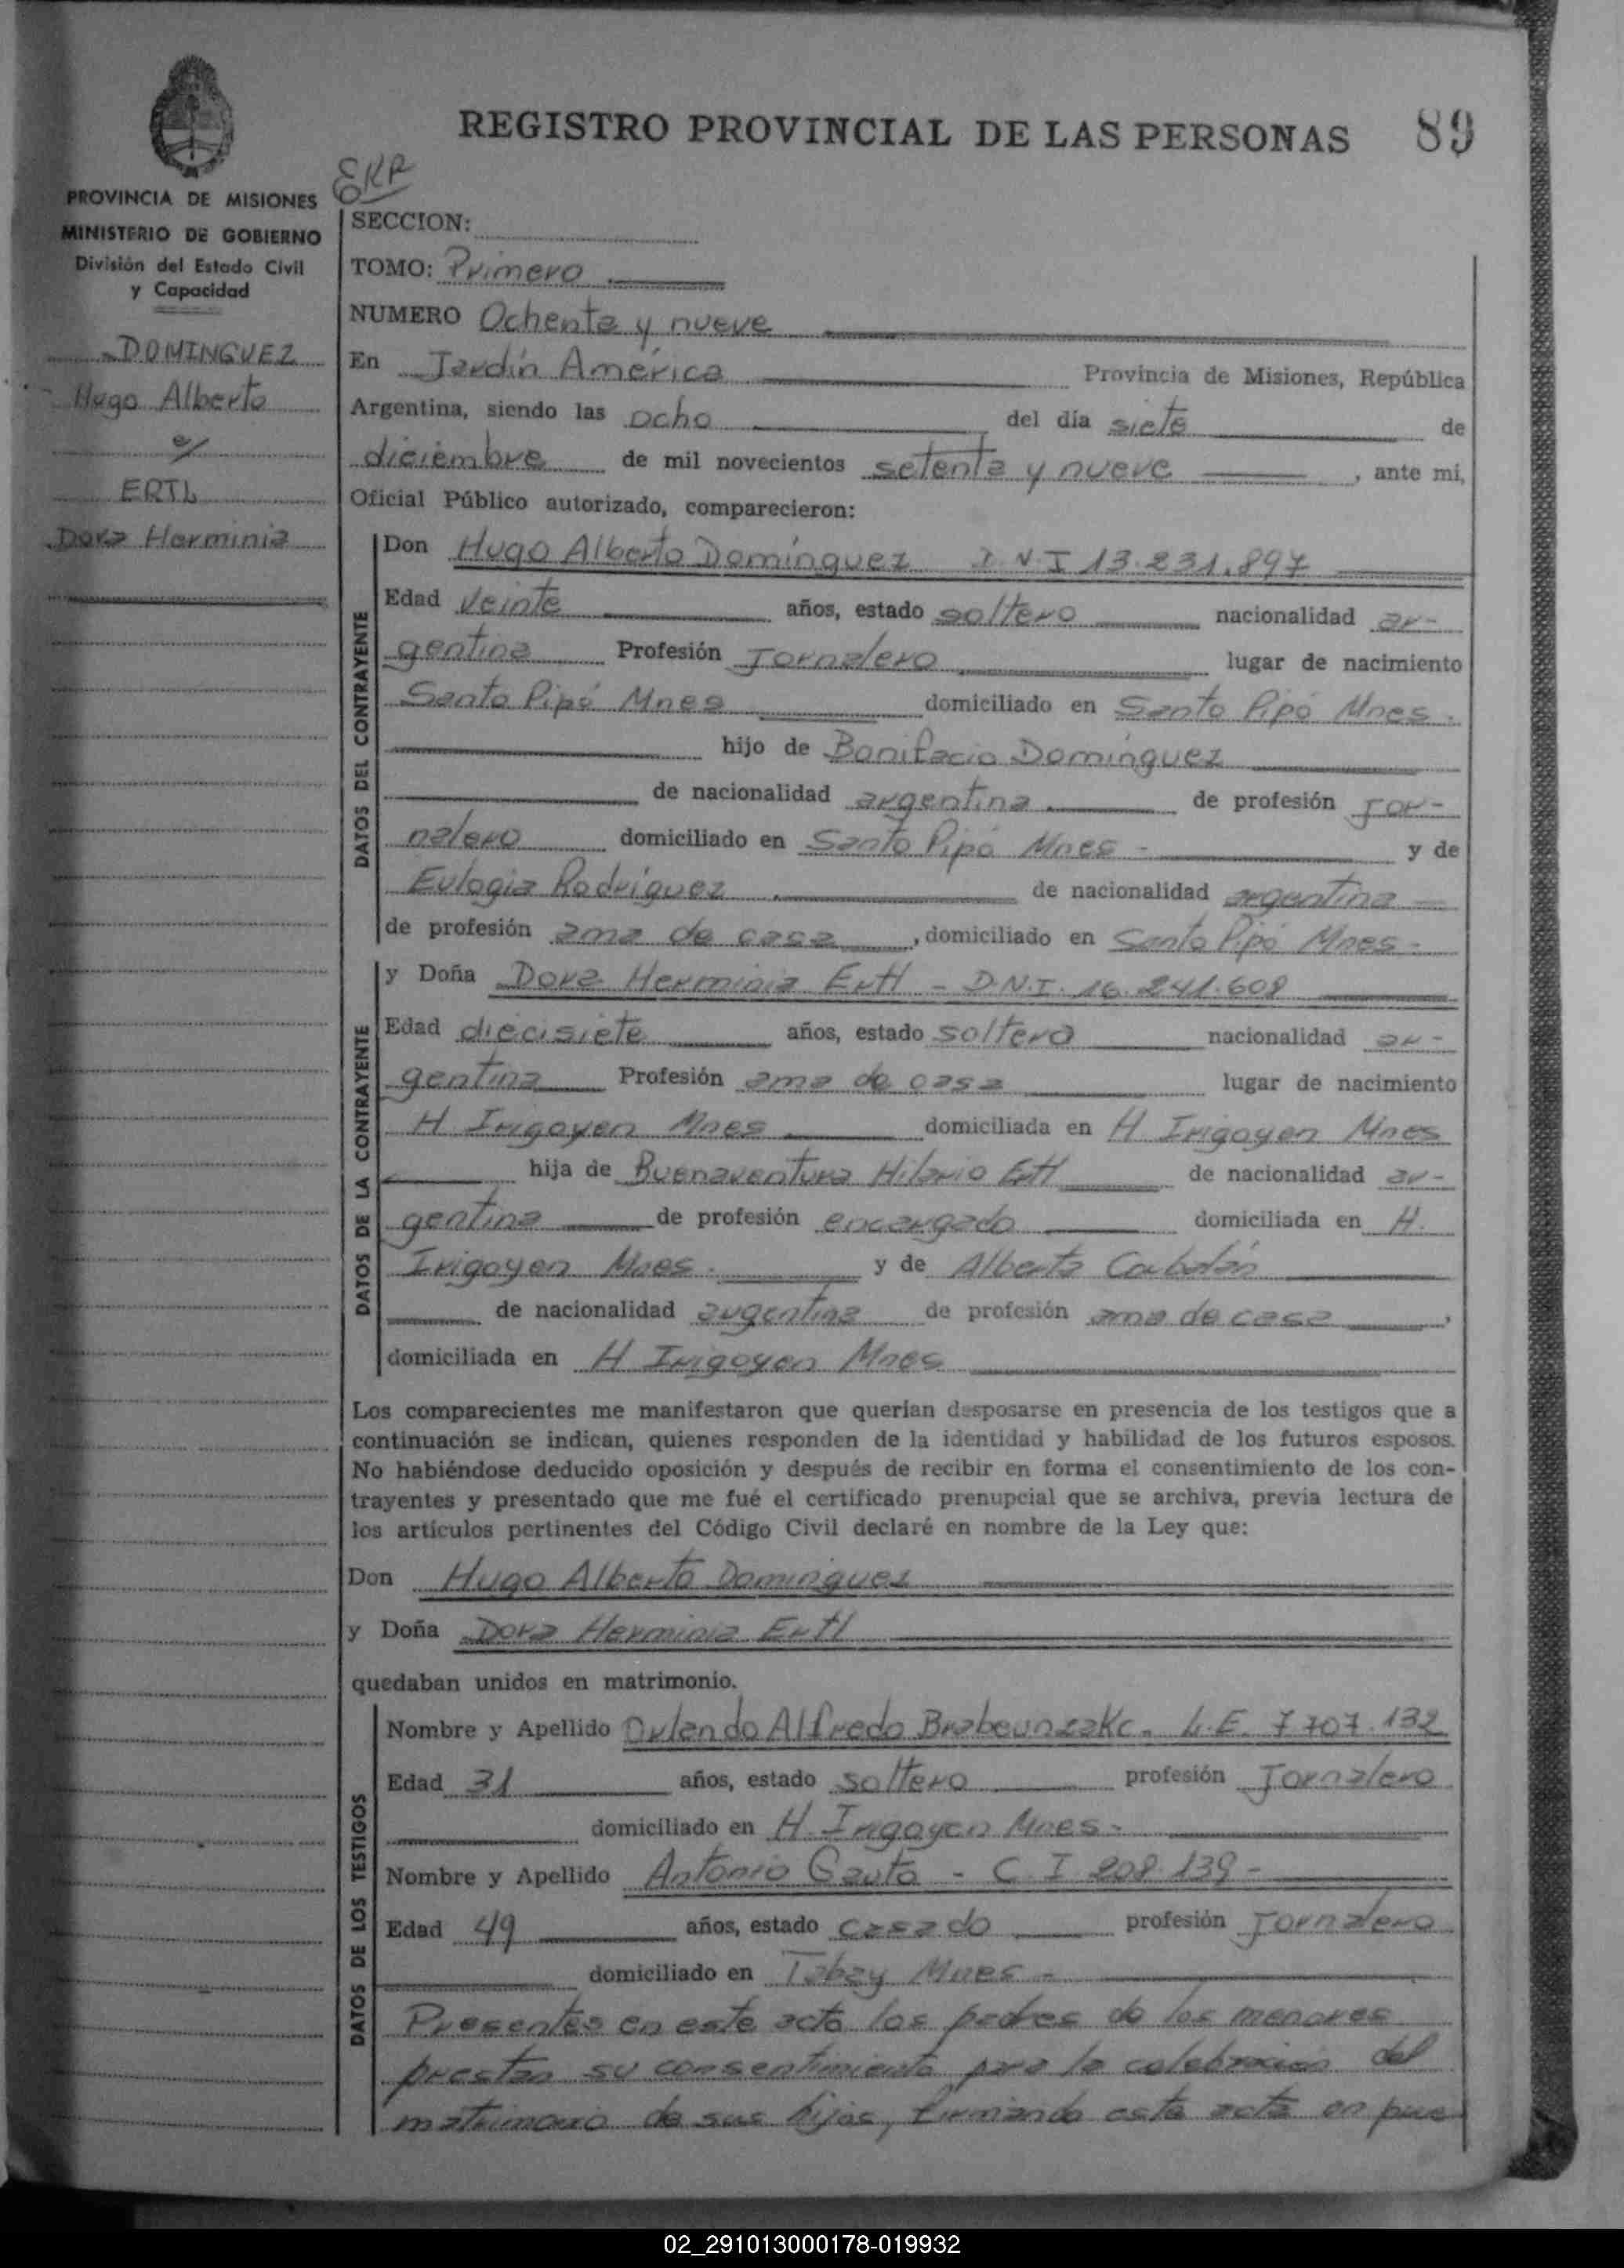 REGISTRO PROVINCIAL DE LAS PERSONAS 89
PROVINCIA DE MISIONES
MINISTERIO DE GOBIERNO
División del Estado Civil
y Capacidad
DOMINGUEZ
Hugo Alberto
c/
ERTL
Dora Herminia
SECCION:
TOMO: Primero
NUMERO Ochenta y nueve
En Jardín América Provincia de Misiones, República
Argentina, siendo las ocho del día siete de
diciembre de mil novecientos setenta y nueve, ante mi,
Oficial Público autorizado, comparecieron:
DATOS DEL CONTRAYENTE
Don Hugo Alberto Domínguez D.N.I 13.231.897
Edad veinte años, estado soltero nacionalidad ar-
gentina Profesión Jornalero lugar de nacimiento
Santo Pipó Mnes domiciliado en Santo Pipó Mnes.
hijo de Bonifacio Domínguez
de nacionalidad argentina de profesión Jor-
nalero domiciliado en Santo Pipó Mnes - y de
Eulogia Rodríguez de nacionalidad argentina
de profesión ama de casa, domiciliado en Santo Pipó Mnes.
DATOS DE LA CONTRAYENTE
y Doña Dora Herminia Ertl - D.N.I. 16.241.608
Edad diecisiete años, estado soltera nacionalidad ar-
gentina Profesión ama de casa lugar de nacimiento
H Irigoyen Mnes domiciliada en H Irigoyen Mnes
hija de Buenaventura Hilario Ertl de nacionalidad ar-
gentina de profesión encargado domiciliada en H.
Irigoyen Mnes. y de Alberta
de nacionalidad argentina de profesión ama de casa,
domiciliada en H Irigoyen Mnes
Los comparecientes me manifestaron que querían desposarse en presencia de los testigos que a
continuación se indican, quienes responden de la identidad y habilidad de los futuros esposos.
No habiéndose deducido oposición y después de recibir en forma el consentimiento de los con-
trayentes y presentado que me fué el certificado prenupcial que se archiva, previa lectura de
los artículos pertinentes del Código Civil declaré en nombre de la Ley que:
Don Hugo Alberto Domingues
y Doña Dora Herminia Ertl
quedaban unidos en matrimonio.
DATOS DE LOS TESTIGOS
Nombre y Apellido Orlando Alfredo L.E. 7707.132
Edad 31 años, estado soltero profesión Jornalero
domiciliado en H. Irigoyen Mnes-
Nombre y Apellido Antonio Gauto - C.I 208.139-
Edad 49 años, estado casado profesión Jornalero
domiciliado en Tabay Mnes -
Presentes en este acto los padres de los menores
prestan su consentimiento para la celebración del
matrimonio de sus hijos, firmando esta acta en prue
02_291013000178-019932